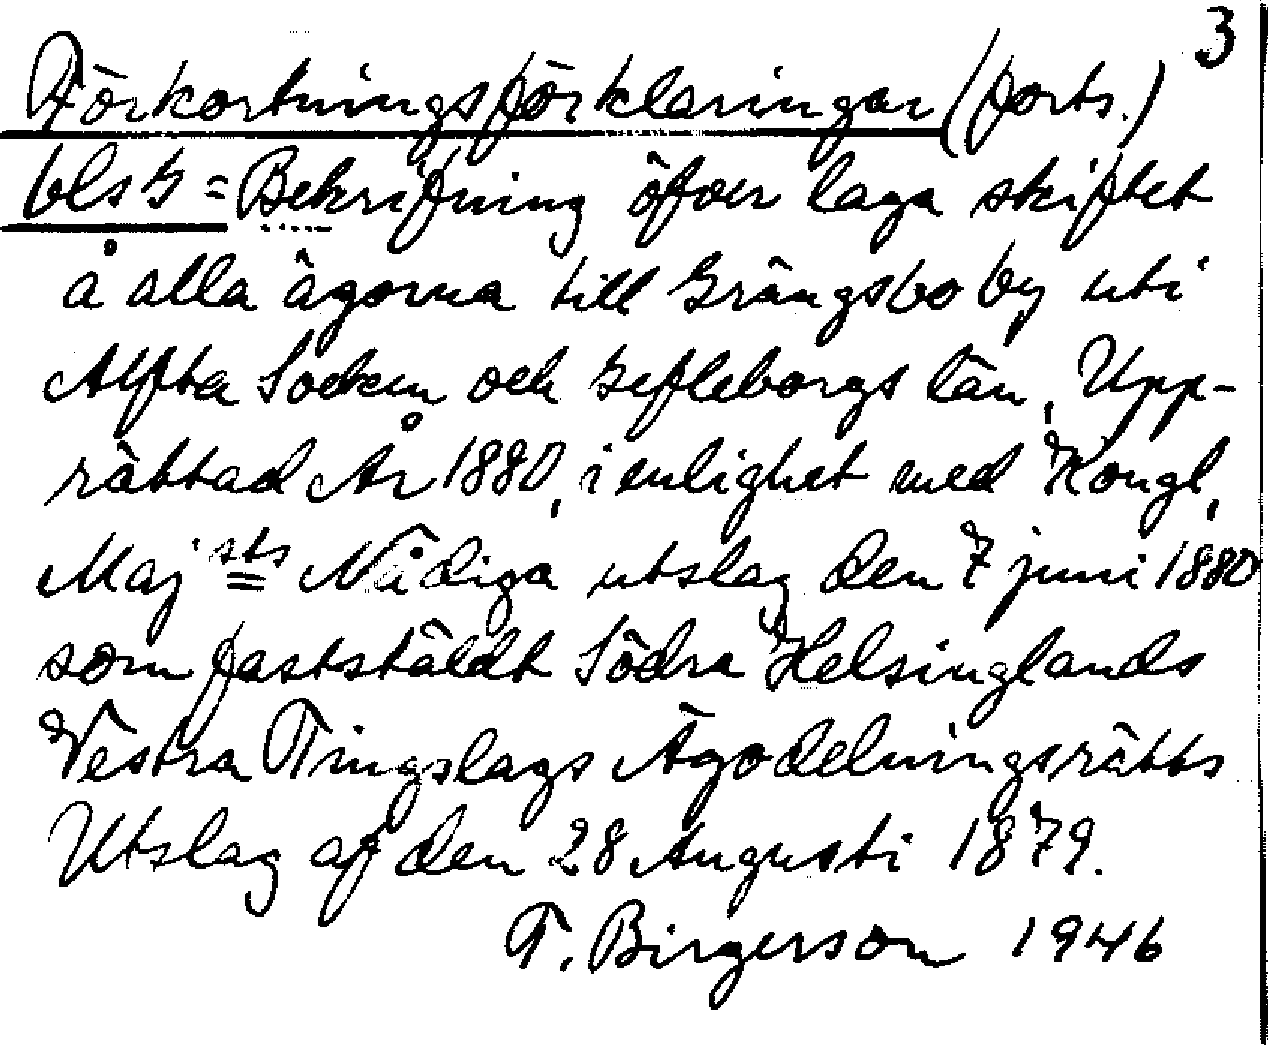 3
Förkortningsförklaringar (forts.)
bls G = Bekrifning öfver laga skiftet
å alla ägorna till Grängsbo by uti
Alfta Socken och Gefleborgs län, Upp-
rättad År 1880, i enlighet med Kongl,
Maj:sts Nådiga utslag den 7 juni 1880
som fastställdt Södra Helsinglands
Vestra Tingslags Ägodelningsrätts
Utslag af den 28 Augusti 1879.
T. Birgerson 1946